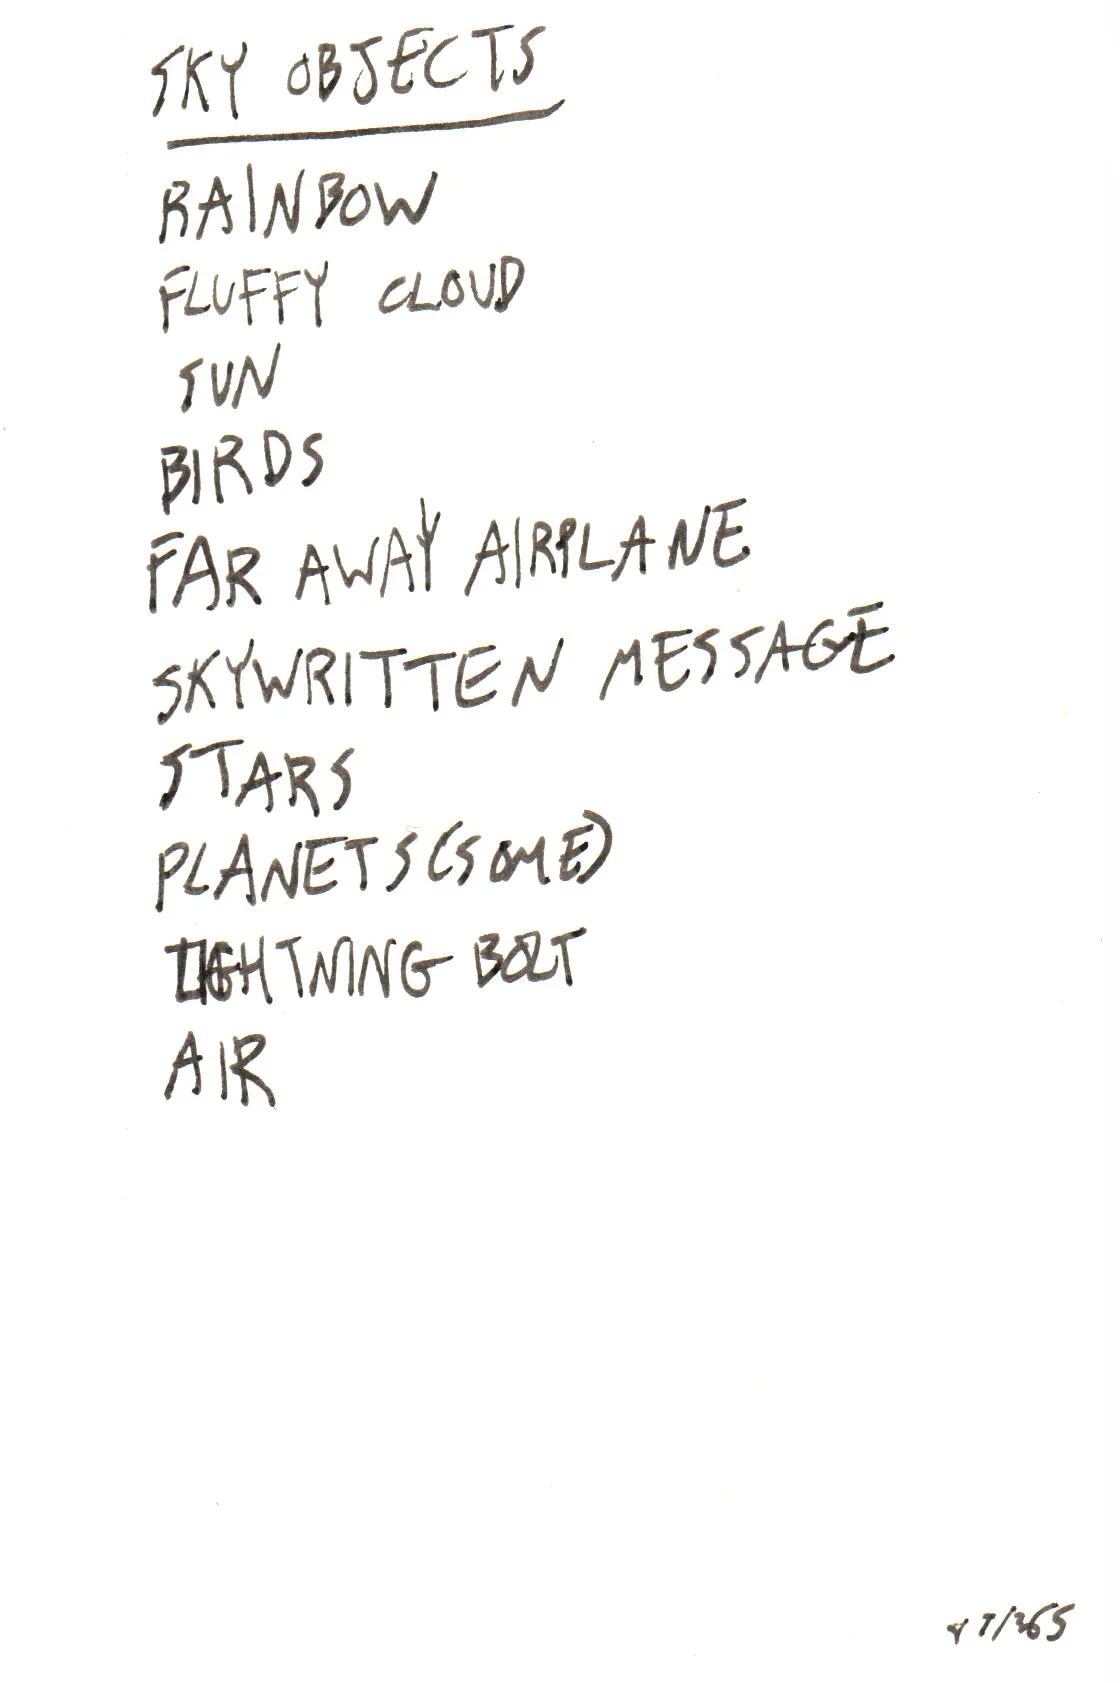 SKY OBJECTS
RAINBOW
FLUFFY CLOUD
SUN
BIRDS
FAR AWAY AIRPLANE
SKYWRITTEN MESSAGE
STARS
PLANETS (SOME)
LIGHTNING BOLT
AIR
47/365